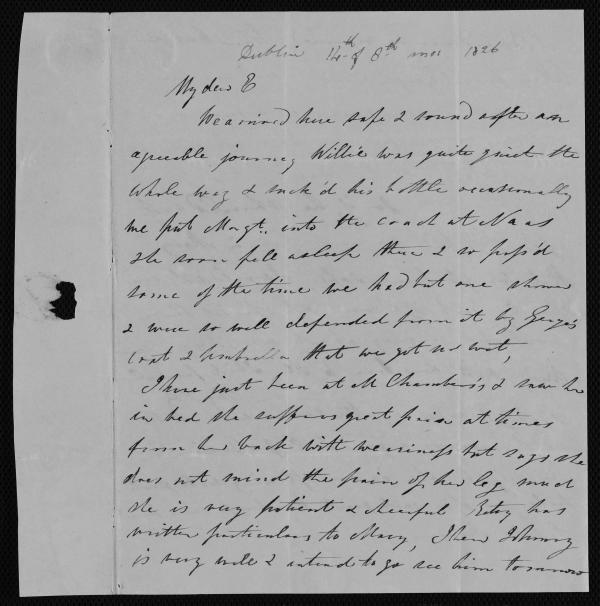 Dublin 14th of 8th mo 1826
My dear E
We arrived here safe & sound after an
agreeable journey Willie was quite quiet the
whole way & suck'd his bottle occasionally
we put Margt. into the coach at Naas
He soon fell asleep there & so pass'd
some of the time we had but one shower
& were so well defended from it by George's
coat & umbrella that we got no wet,
I have just been at M Chambers's & saw her
in bed she suffers great pain at times
from her back with weariness but says she
does not mind the pain of her leg much
she is very patient & cheerful Betsy has
written particulars to Mary, I hear Johnny
is very well & intend to go see him tomorrow